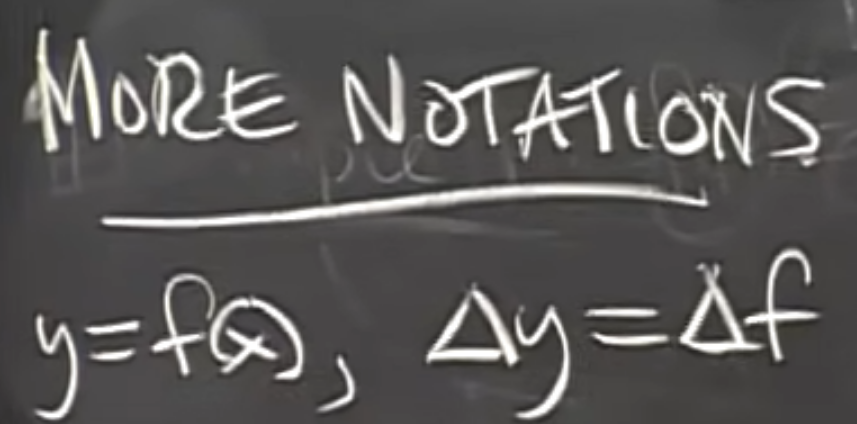 MORE NOTATIONS
y=f(x), Δy=Δf